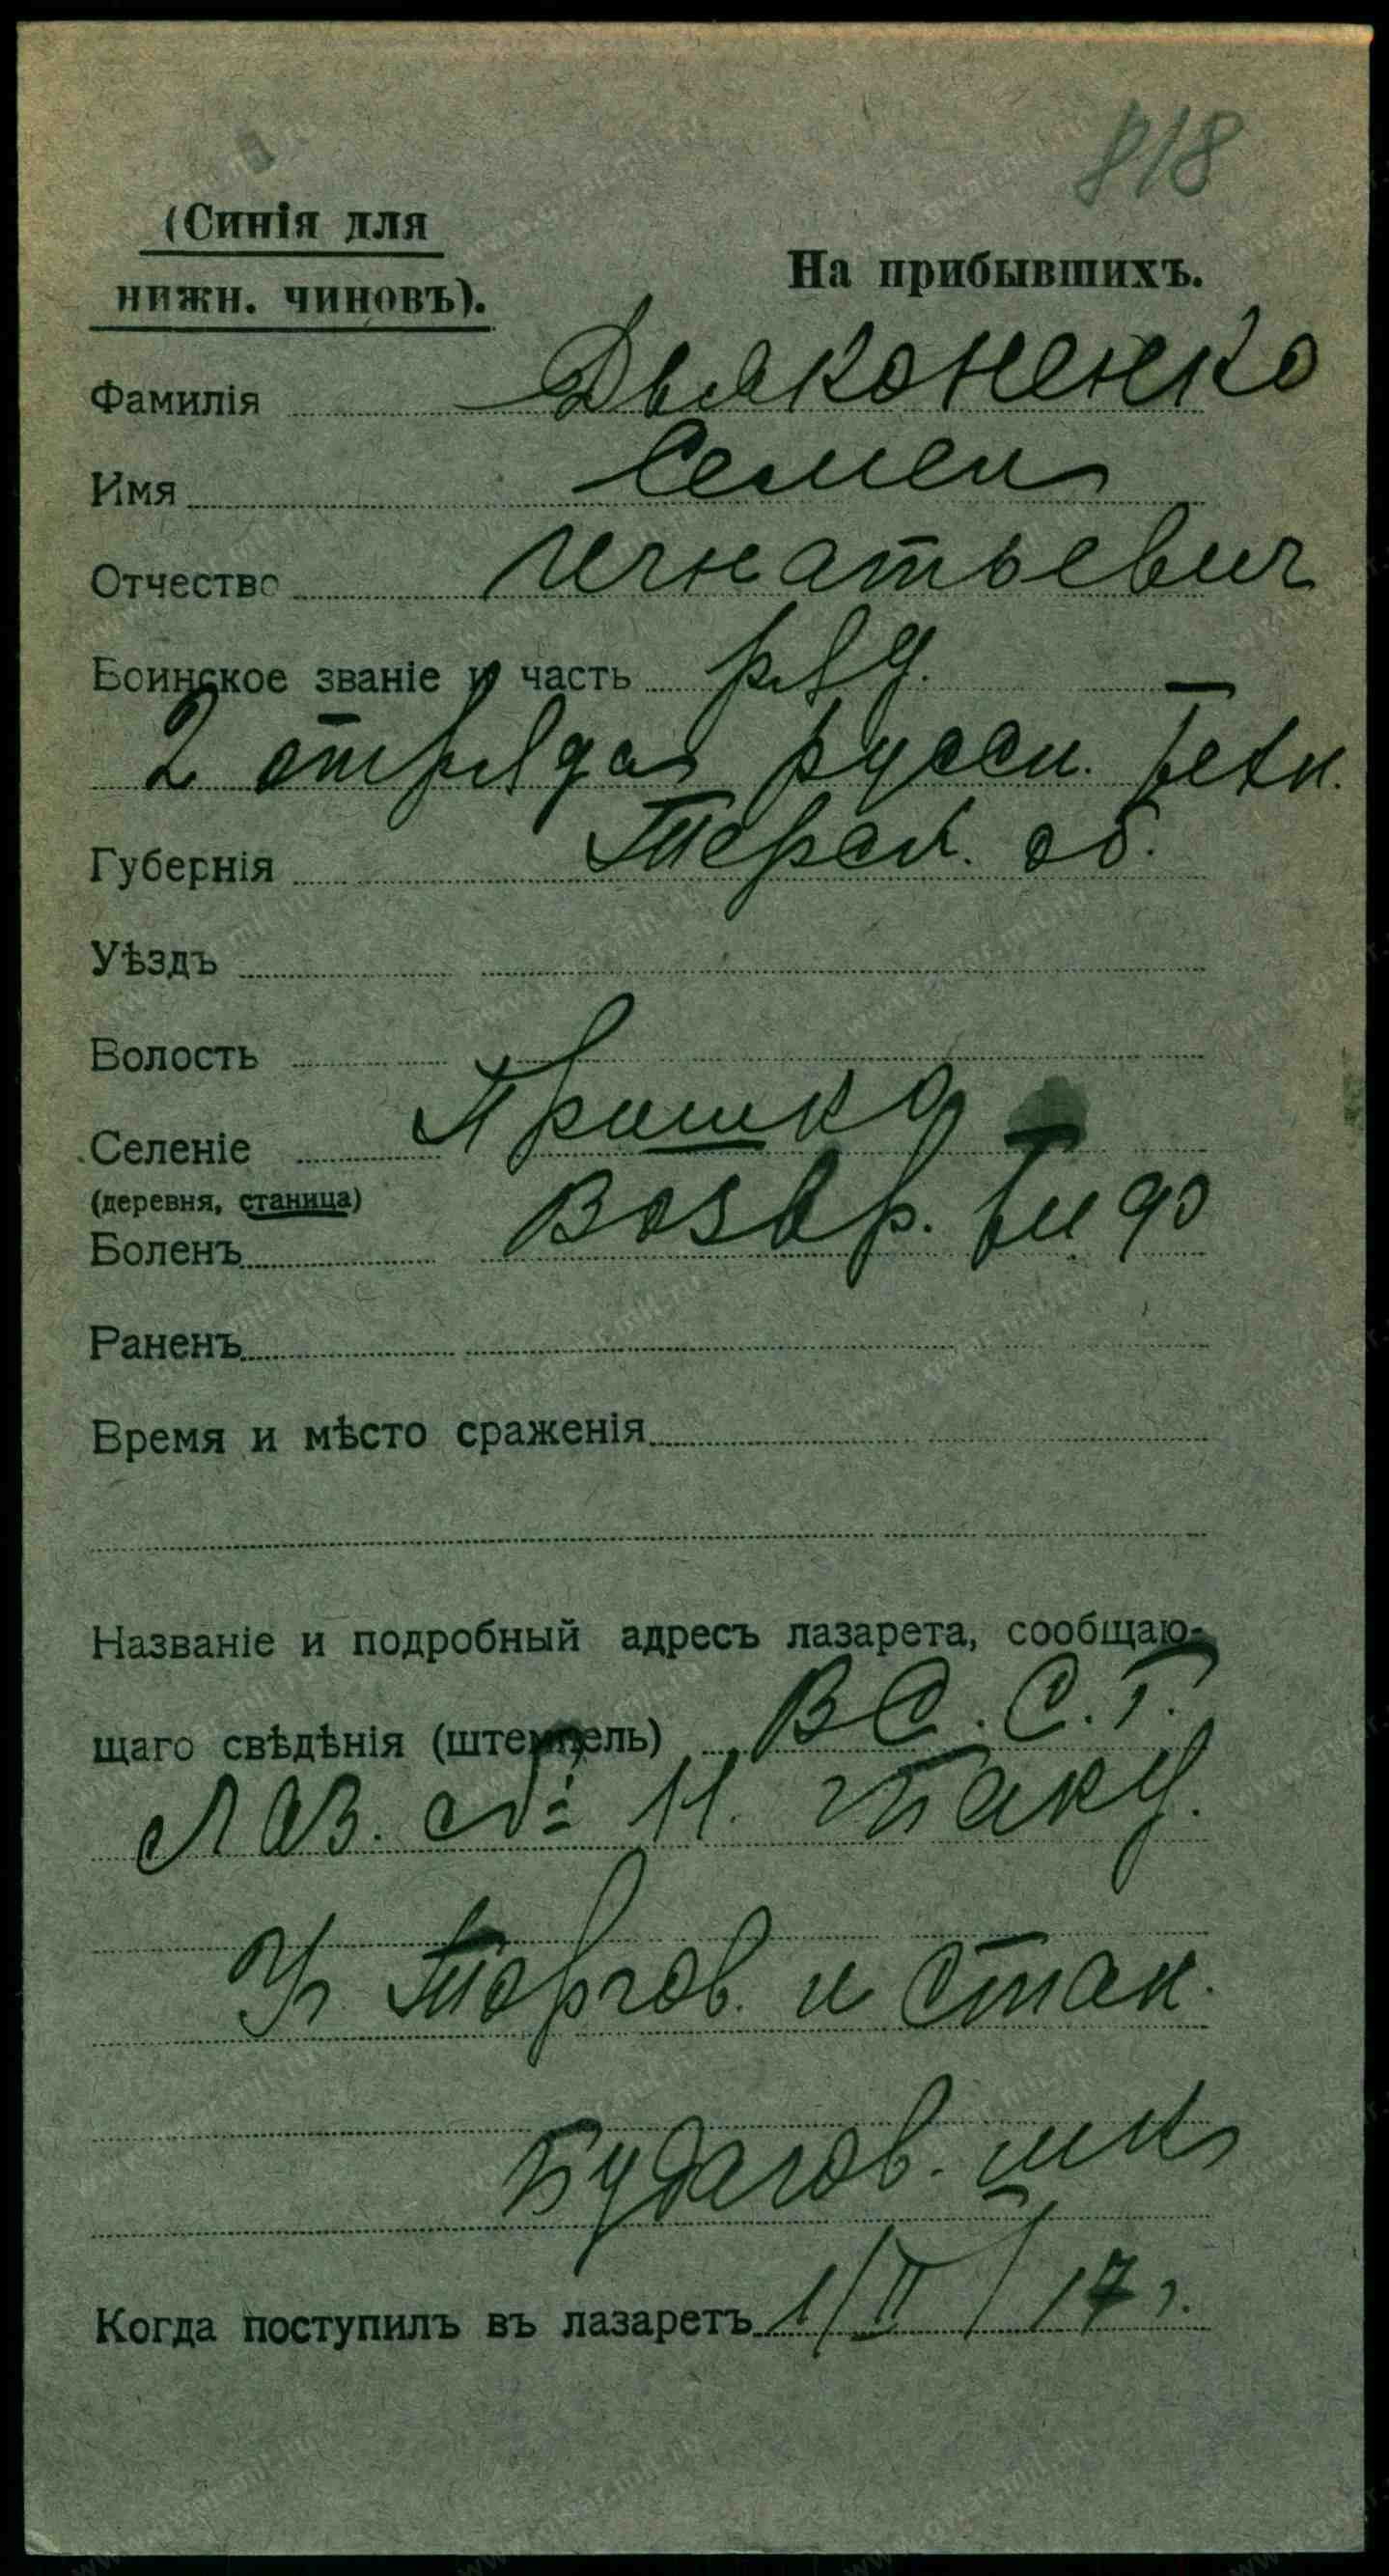 818
(Синія для
нижн. чиновъ).
На прибывшихъ.
Фамилія Дьяконенко
Имя Семен
Отчество Игнатьевич
Воинское званіе и часть ряд.
2 отряда русск.
Губернія Терск. об.
Уѣздъ
Волость
Селеніе Пришиб
(деревня, станица)
Боленъ Возвр.
Раненъ
Время и мѣсто сраженія
Названіе и подробный адресъ лазарета, сообщаю-
щаго свѣдѣнія (штемпель) В С. С. Г.
Лаз. № 11.
Торгов. и
Будагов.
Когда поступилъ въ лазаретъ 1/II/17 г.